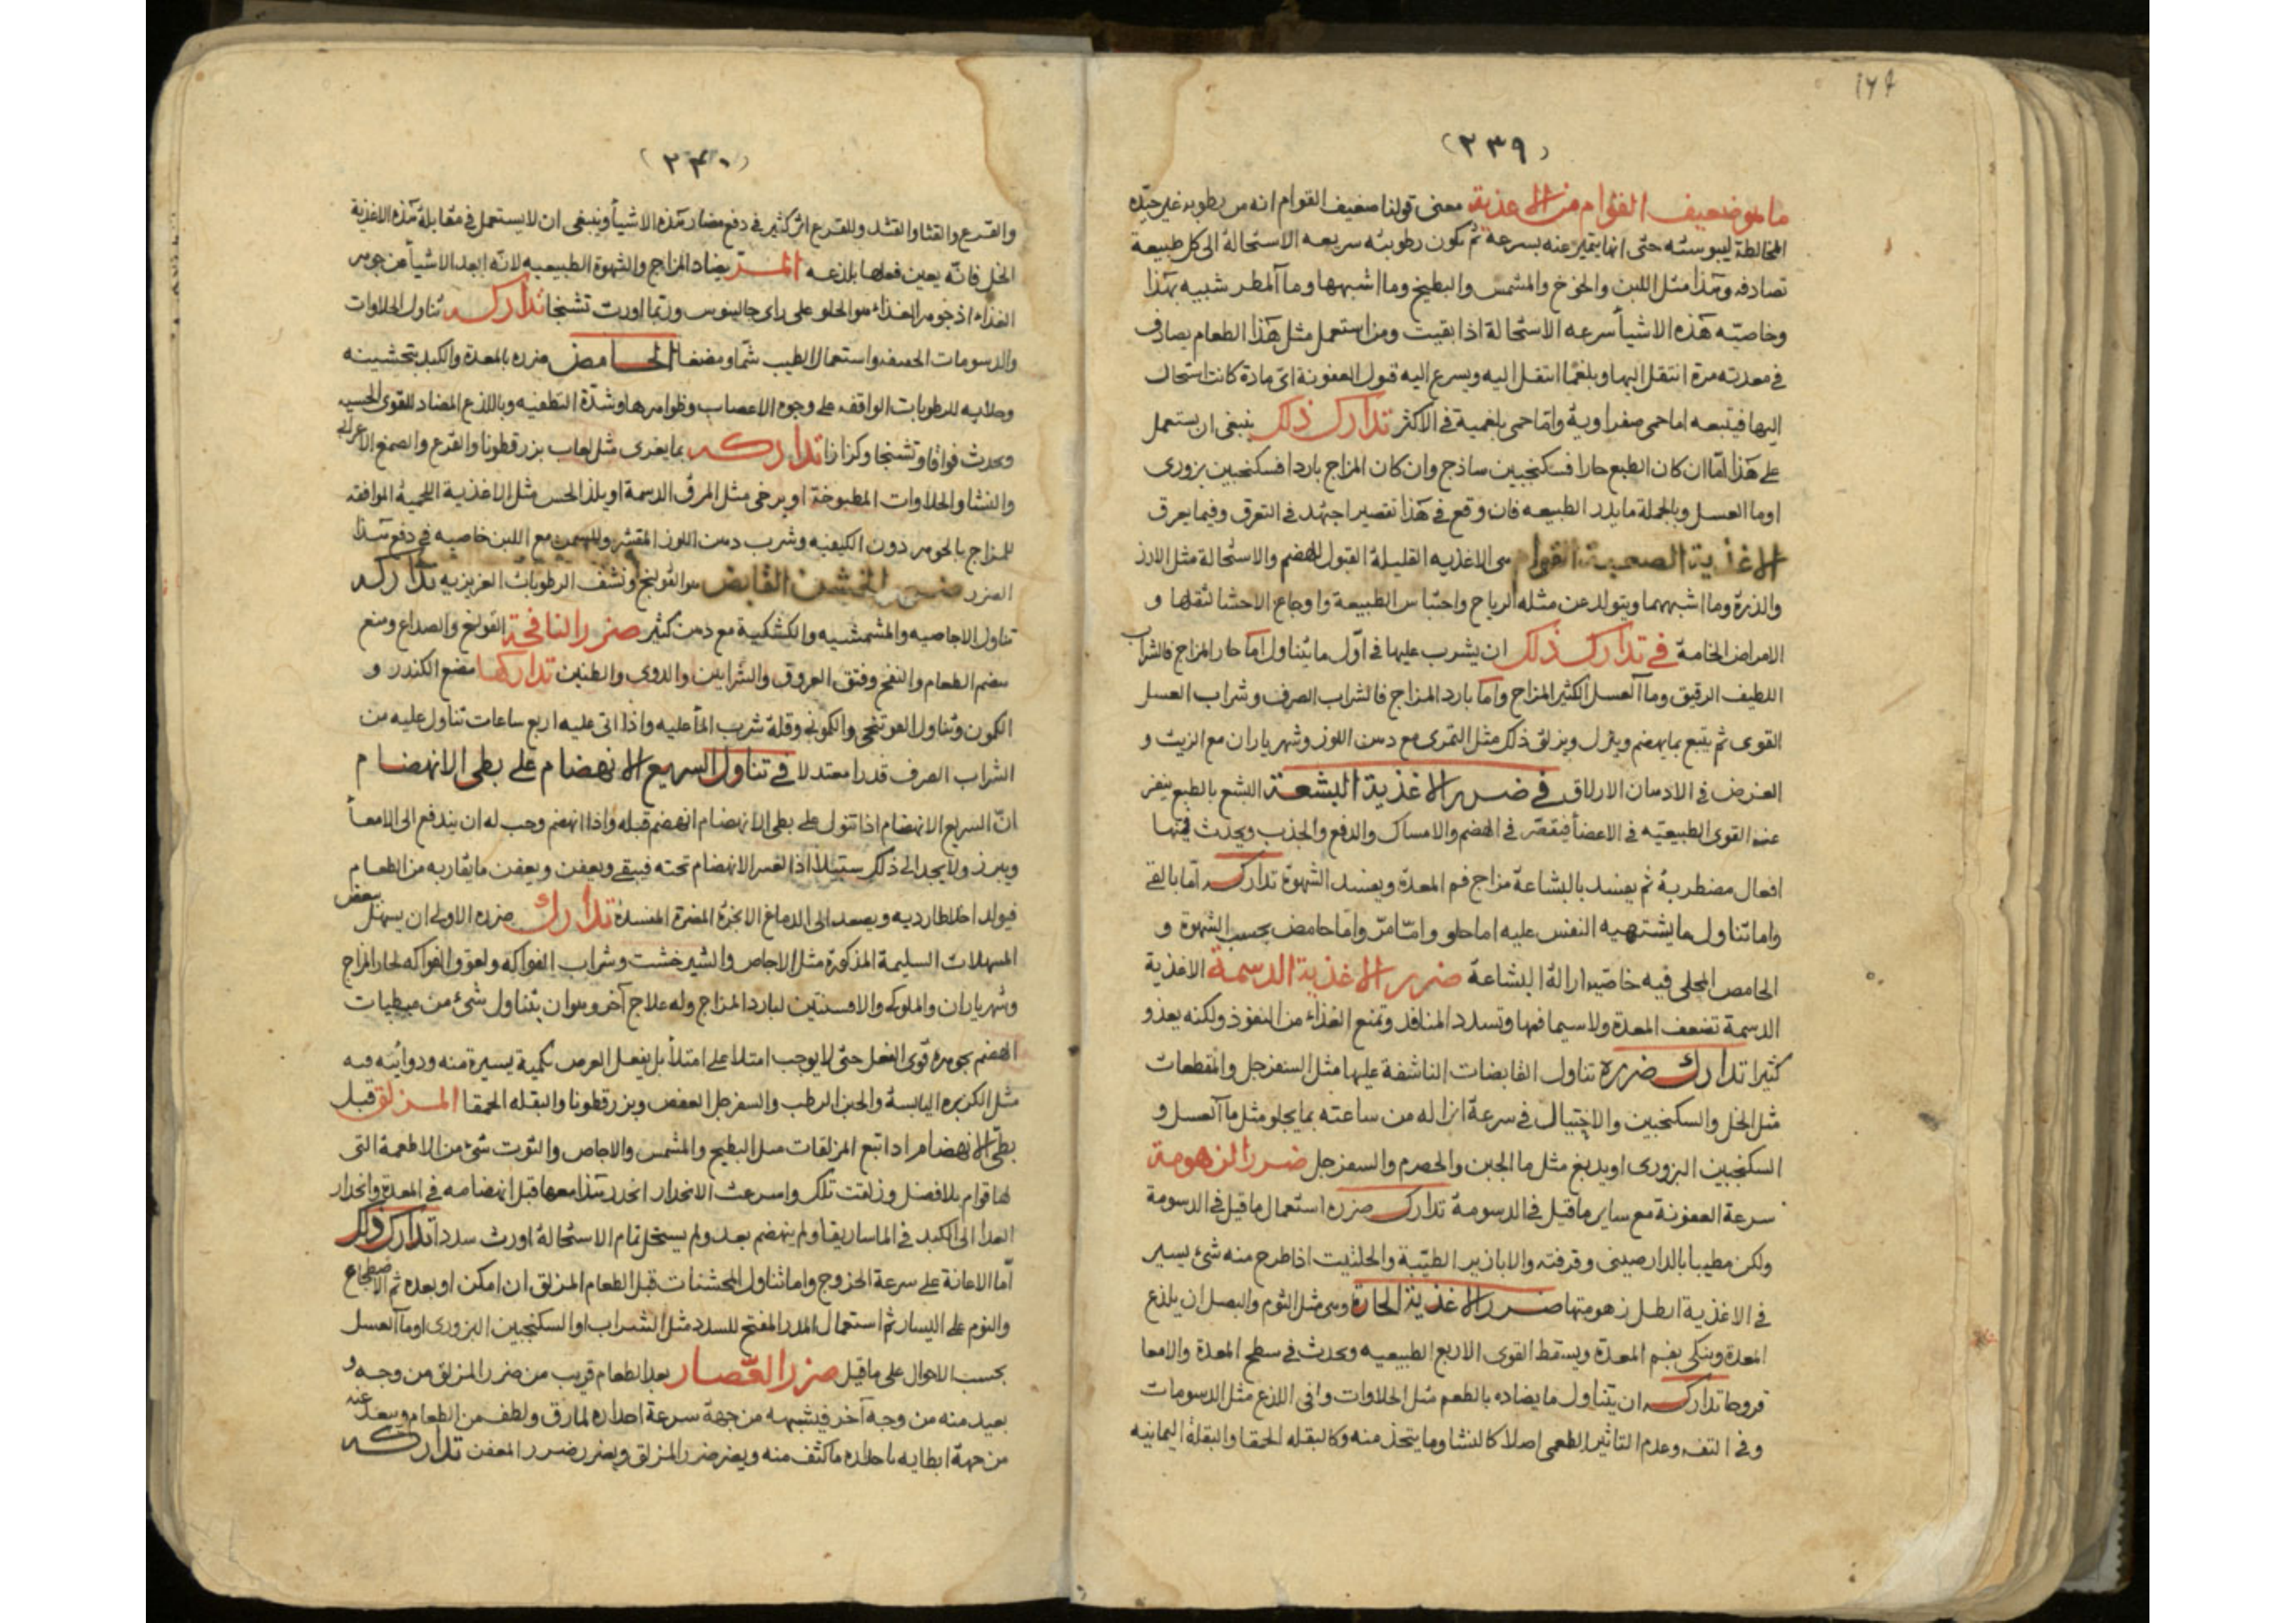 ١٢٩
(٢٣٩)
ما هو ضعيف القوام من الاغذية معنى قولنا ضعيف القوام انه من رطوبه غير جيّده
المخالطة ليبوسته حتى انها يتميز عنه بسرعة ثم تكون رطوبته سريعه الاستحالة الى كل طبيعة
تصادفه وهذا مثل اللبن والخوخ والمشمش والبطيخ وما اشبهها وماآ المطر شبيه بهذا
وخاصيّه هذه الاشيأ سرعه الاستحالة اذا بقيت ومن استعمل مثل هذا الطعام يصادف
فى معدته مرة انتقل اليها وبلغما انتقل اليه ويسرع اليه قبول العفونة اىّ مادة كانت استحال
اليها فيتبعه اما حمى صفراوية واما حمى بلغمية فى الاكثر تدارك ذلك ينبغى ان يستعمل
على هذا امّا ان كان الطبع حارا فسكنجبين ساذج وان كان المزاج باردا فسكنجبين بزورى
اوما العسل وبالجملة ما يدر الطبيعه فان وقع فى هذا تقصير اجتهد فى التعرق وفيما يعرق
الاغذية الصعبة القوام هى الاغذيه القليلة القبول للهضم والاستحالة مثل الارز
والذرة وما اشبههما ويتولد عن مثله الرياح واحتباس الطبيعة واوجاع الاحشا لثقلها و
الامراض الخامة فى تدارك ذلك ان يشرب عليها فى اوّل ما يتناول امّا حار المزاج فالشراب
اللطيف الرقيق وماآ العسل الكثير المزاج وامّا بارد المزاج فالشراب الصرف وشراب العسل
القوى ثم يتبع بما يهضم وينزل ويزلق ذلك مثل التمرى مع دهن اللوز وشهرياران مع الزيت و
الغرض فى الادهان الازلاق فى ضرر الاغذية البشعة البشع بالطبع ينفر
عنه القوى الطبيعيّه فى الاعضأ فيقصّر فى الهضم والامساك والدفع والجذب ويحدث فيها
افعال مضطربة ثم يفسد بالبشاعة مزاج فم المعدة ويفسد الشهوة تداركه امّا بالقئ
واما تناول ما يشتهيه النفس عليه اما حلو وامّا مرّ وامّا حامض بحسب الشهوة و
الحامص المحلى فيه خاصّيه ازالة البشاعة ضرر الاغذية الدسمة الاغذية
الدسمة تضعف المعدة ولا سيما فمها وتسدد المنافذ وتمنع الغذاء من النفوذ ولكنه يغذو
كثيرا تدارك ضرره تناول القابضات الناشفة عليها مثل السفرجل والمقطعات
مثل الخل والسكنجبين والاحتيال فى سرعة انزاله من ساعته بما يجلو مثل ماآ العسل و
السكنجبين البزورى او يدبغ مثل ما الجبن والحصرم والسفرجل ضرر الزهومة
سرعة العفونة مع ساير ما قيل فى الدسومة تدارك ضرره استعمال ما قيل فى الدسومة
ولكن مطيبا بالدارصينى وقرفته والابازير الطيّبة والحلتيت اذا طرح منه شئ يسير
فى الاغذية ابطل زهومتها ضرر الاغذية الحارة وهى مثل الثوم والبصل ان يلذع
المعدة وينكى بفم المعدة ويسقط القوى الاربع الطبيعيه ويحدث فى سطح المعدة والامعا
قروحا تداركه ان يتناول ما يضاده بالطعم مثل الحلاوات وافى اللذع مثل الدسومات
وفى التفه وعدم التاثير الطعمى اصلا كالنشا وما يتخذ منه وكالبقله الحمقا والبقلة اليمانيه
(٢٤٠)
والقرع والقثا والقثد وللقرع اثر كثير فى دفع مضار هذه الاشيأ وينبغى ان لا يستعمل فى مقابلة هذه الاغذية
الخل فانّه يعين فعلها بلذعه المـــر يضاد المزاج والشهوة الطبيعيه لانّه ابعد الاشيأ عن جوهر
الغذاء اذ جوهر الغذاء هو الحلو على راى جالينوس وربّما اورث تشنجا تداركه تناول الحلاوات
والدسومات واستعمال الطيب شمّا ومضغا الحامض ضرره بالمعدة والكبد بتخشينه
وجلايه للرطوبات الواقفه على وجوه الاعصاب وظواهرها وشدّة التطفيه وباللذع المضاد للقوى الحسيه
ويحدث فواقا وتشنجا وكزازا تداركه بما يغرى مثل لعاب بزر قطونا والقرع والصمغ الاعرابى
والنشا والحلاوات المطبوخة او يرخى مثل المرق الدسمة او يلذ الحس مثل الاغذية اللحمية الموافقه
للمزاج بالجوهر دون الكيفيه وشرب دهن اللوز المقشر وللسمن مع اللبن خاصيه فى دفع هذا
الضرر ضرر الخشن القابض هو القولنج ونشف الرطوبات الغريزيه تداركه
تناول الاجاصيه والمشمشيه والكشكية مع دهن كثير ضرر النافخة القولنج والصداع ومنع
هضم الطعام والنفخ وفتق العروق والشرايين والدوى والطنين تداركها مضغ الكندر و
الكمون وتناول الفوتنجى والكمونى وقلة شرب المأ عليه واذا اتى عليه اربع ساعات تناول عليه من
الشراب الصرف قدرا معتدلا فى تناول السريع الانهضام على بطى الانهضام
انّ السريع الانهضام اذا تنول على بطى الانهضام انهضم قبله واذا انهضم وجب له ان يندفع الى الامعأ
ويبرز ولا يجد الى ذلك سبيلا اذا العسر الانهضام تحته فيبقى ويعفن ويعفن ما يقاربه من الطعام
فيولد اخلاطا رديه ويصعد الى الدماغ الابخرة المضرة المفسدة تدارك ضرره الاولى ان يسهل ببعض
المسهلات السليمة المذكورة مثل الاجاص والشيرخشت وشراب الفواكه ولعوق الفواكه لحار المزاج
وشهرياران والملوكى والافسنتين لبارد المزاج وله علاج آخر وهو ان يتناول شئ من مبطيات
الهضم بجوهره قوى الفعل حتى لا يوجب امتلا على امتلأ بل يفعل الغرض بكمية يسيرة منه ودوائيه فيه
مثل الكزبره اليابسة والجبن الرطب والسفرجل العفص وبزر قطونا والبقله الحمقا المزلق قبل
بطى الانهضام اذا اتبع المزلقات مثل البطيخ والمشمش والاجاص والتوت شئ من الاطعمة التى
لها قوام بلا فضل وزلقت تلك واسرعت الانحدار انحدر هذا معها قبل انهضامه فى المعدة وانحدار
الغذا الى الكبد فى الماساريقا ولم ينهضم بعد ولم يستحل تمام الاستحالة اورث سددا تدارك ذلك
امّا الاعانة على سرعة الخروج واما تناول المخشنات قبل الطعام المزلق ان امكن او بعده ثم الاضطجاع
والنوم على اليسار ثم استعمال المدر المفتح للسدد مثل الشراب او السكنجبين البزورى اوماآ العسل
بحسب الاحوال على ما قيل ضرر القصار بعد الطعام قريب من ضرر المزلق من وجه و
بعيد منه من وجه آخر فيشبهه من جهة سرعة احداره لما رق ولطف من الطعام ويبعد عنه
من جهة ابطايه باحداره ما كثف منه ويضر ضرر المزلق ويضر ضرر المعفن تداركه